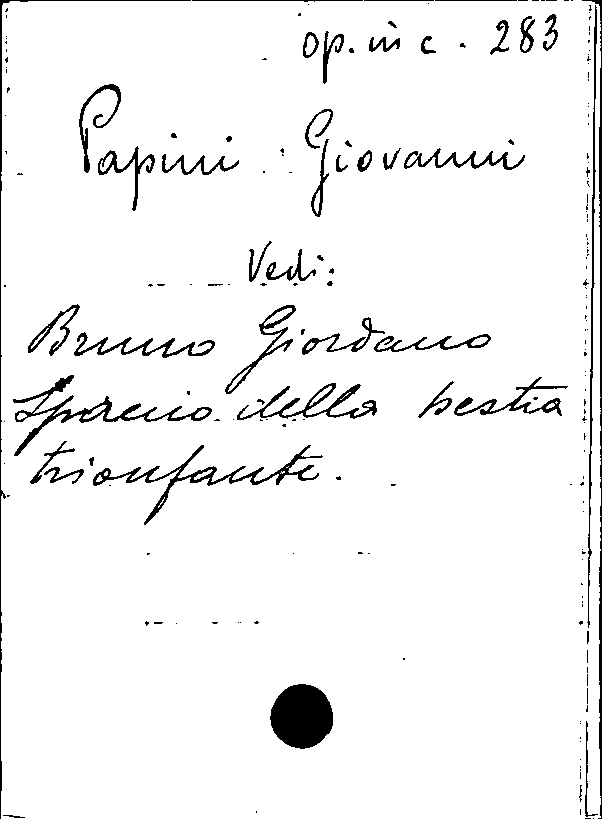 op. in c. 283
Papini Giovanni
Vedi:
Bruno Giordano
Spaccio della bestia
trionfante.